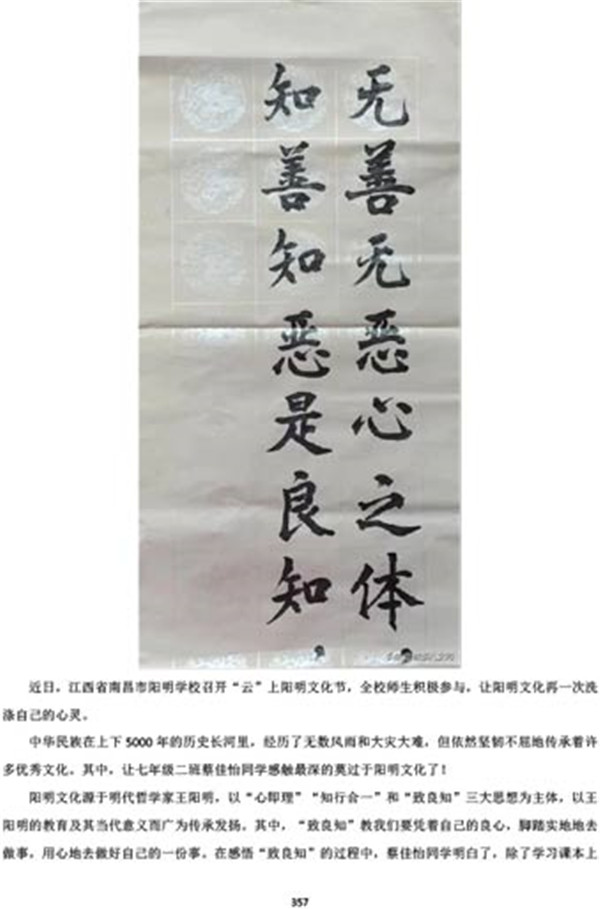 无善无恶心之体
知善知恶是良知
近日，江西省南昌市阳明学校召开“云”上阳明文化节，全校师生积极参与，让阳明文化再一次洗
涤自己的心灵。
中华民族在上下 5000 年的历史长河里，经历了无数风雨和大灾大难，但依然坚韧不屈地传承着许
多优秀文化。其中，让七年级二班蔡佳怡同学感触最深的莫过于阳明文化了！
阳明文化源于明代哲学家王阳明，以“心即理”“知行合一”和“致良知”三大思想为主体，以王
阳明的教育及其当代意义而广为传承发扬。其中，“致良知”教我们要凭着自己的良心，脚踏实地地去
做事，用心地去做好自己的一份事。在感悟“致良知”的过程中，蔡佳怡同学明白了，除了学习课本上
357